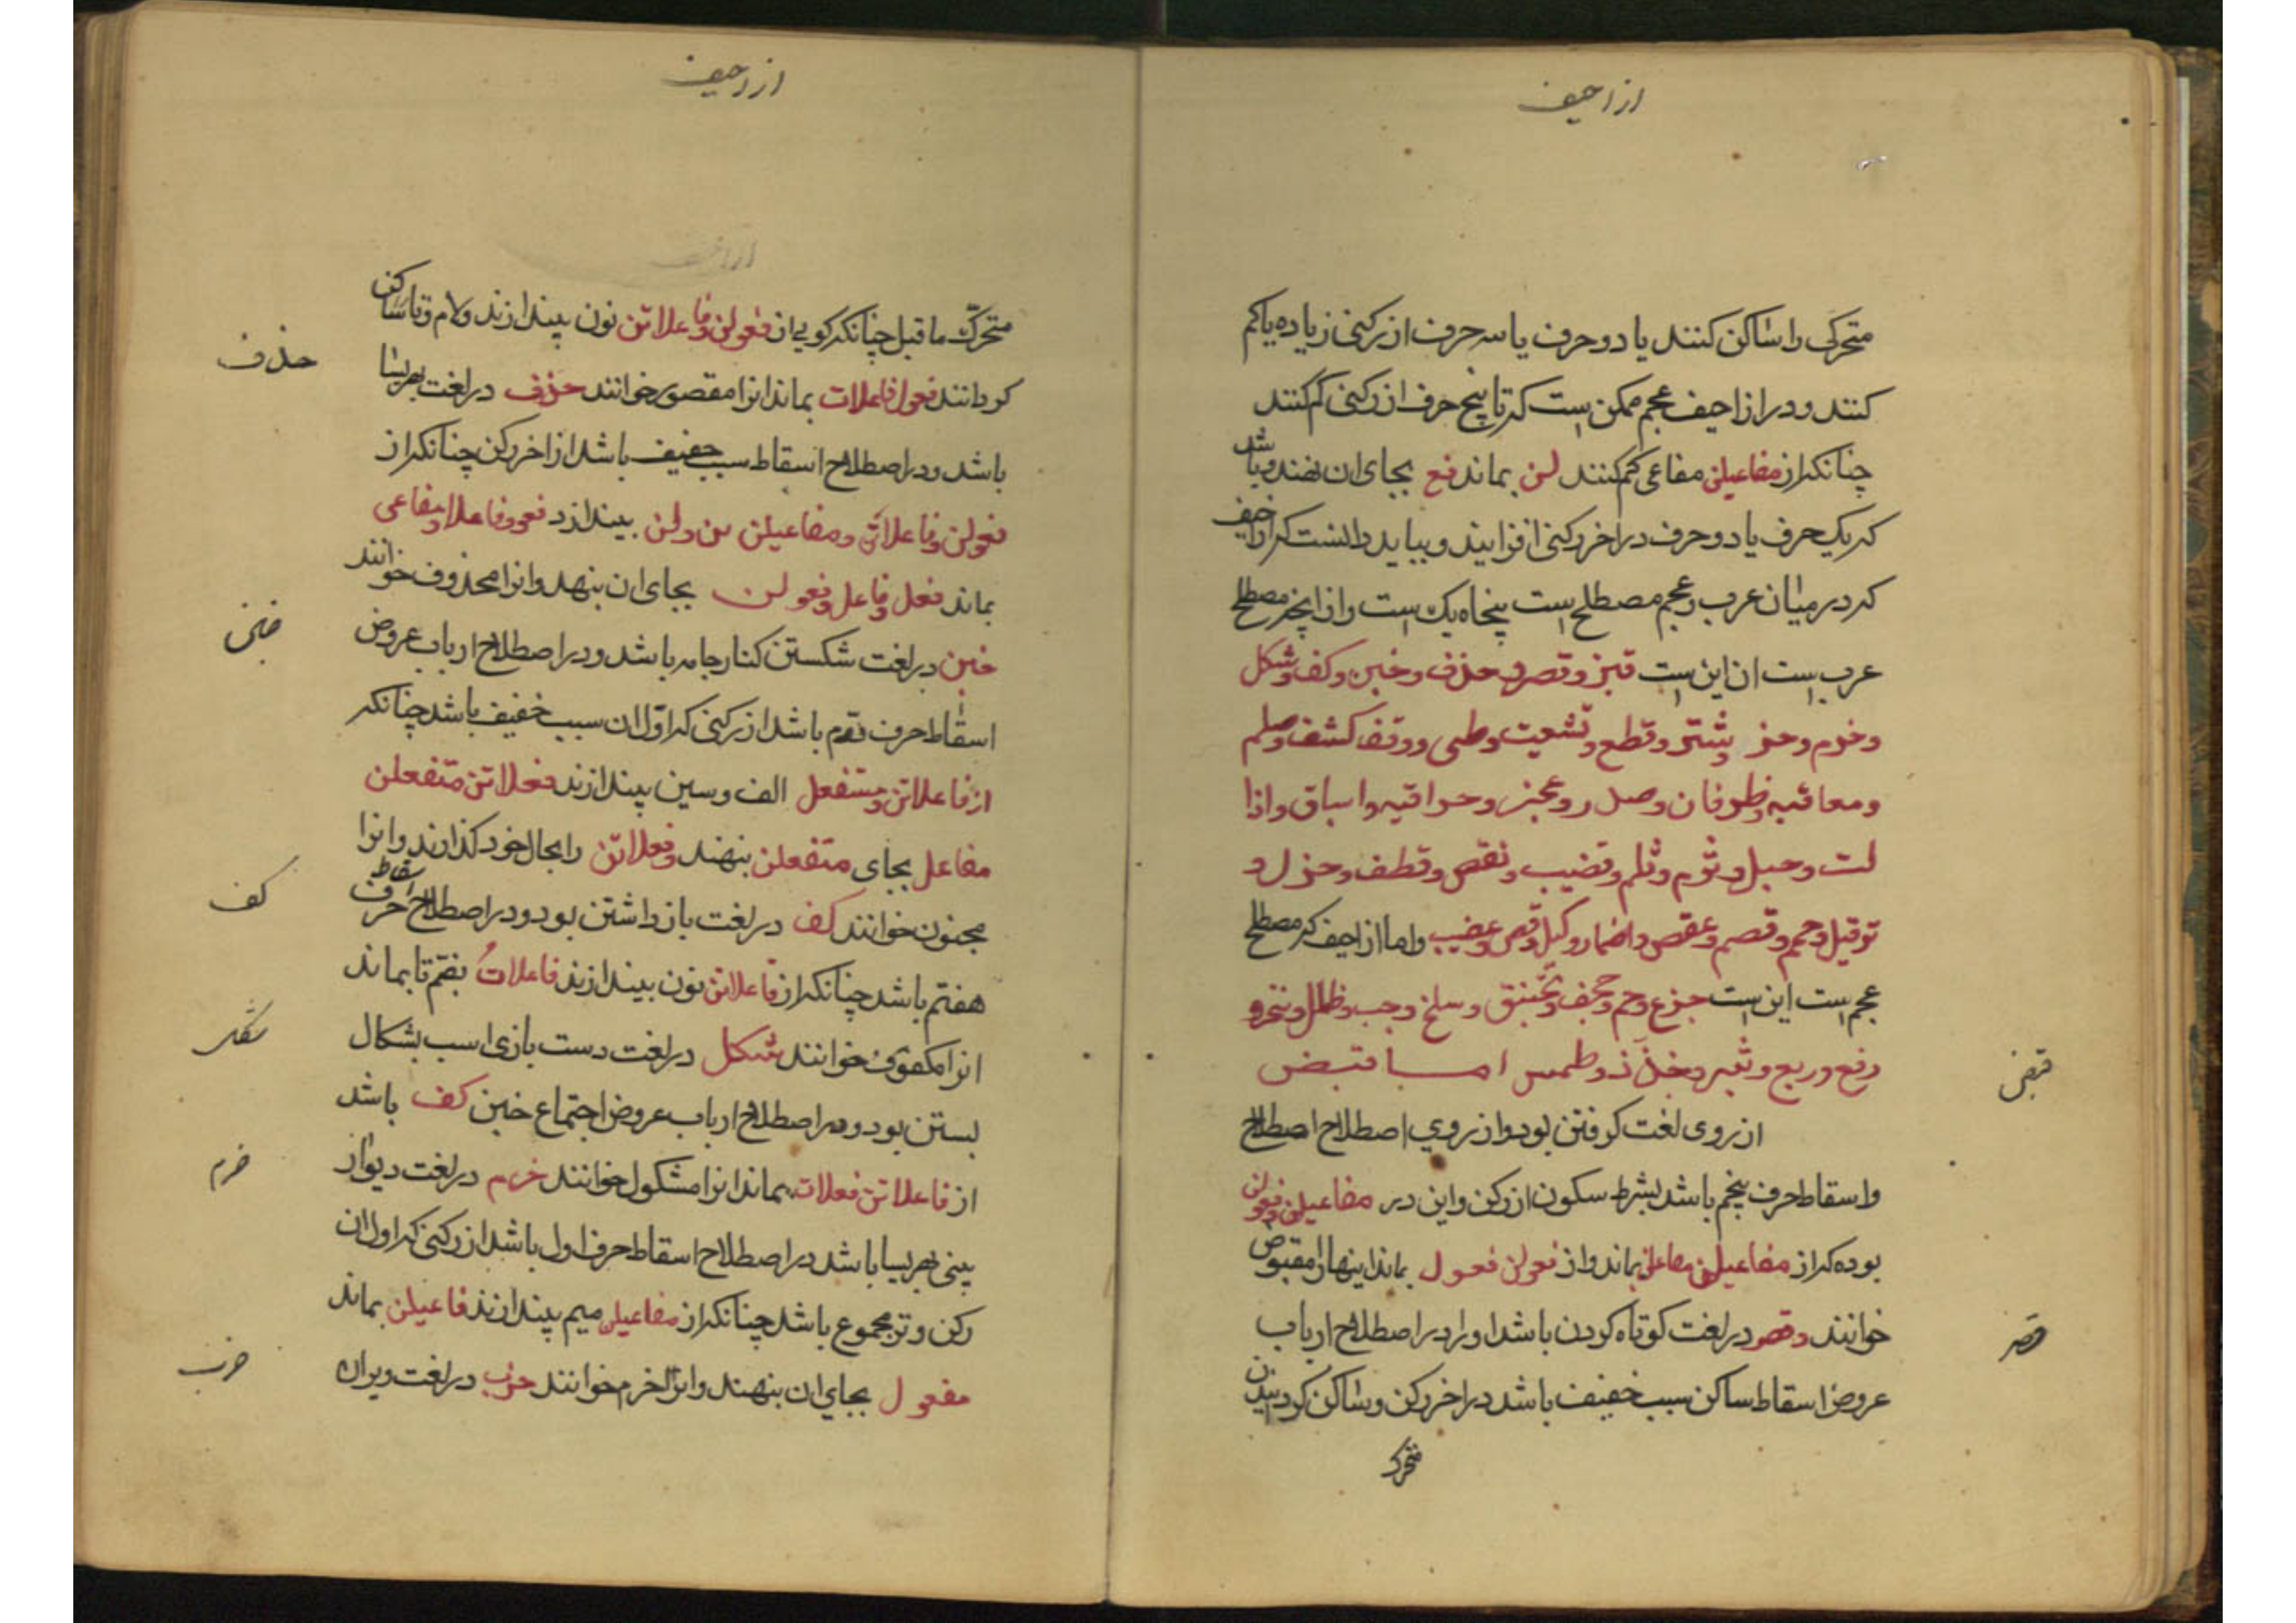 ازاحیف
متحرکی را ساکن کنند یا دو حرف یا سه حرف از رکنی زیاده یا کم
کنند و در ازاحیف عجم ممکن است که تا پنج حرف از رکنی کم کنند
چنانکه از مفاعیلن مفاعی کم کنند لن بماند فع بجای ان نهند و باشد
که یک حرف یا دو حرف در اخر رکنی افزایند و بباید دانست که ازاحیف
که در میان عرب و عجم مصطلح است پنجاه یک است و از انچه مصطلح
عرب است ان این است قبز و قصر و حذف و خبن و کف و شکل
و خرم و شتر و قطع و تشعیت و طی و وقف کشف و صلم
و معاقبه و طرفان و صدر و عجز و
و ثرم و ثلم و قضیب و نقص و قطف و حزل و
و قصم و عقص و اضمار و عضیب و اما ازاحیف که مصطلح
عجم است این است جزع و حجف و تخنیق و سلخ و جب و
رفع و ربع و طمس اما قبض
قبض
از روی لغت کرفتن بود و از روی اصطلاح اصطلاح
و اسقاط حرف پنجم باشد بشرط سکون از رکن و این در مفاعیلن و فعولن
بوده که از مفاعیلن مفاعلن بماند و از فعولن فعول بماند اینها را مقبوض
خوانند و قصر در لغت کوتاه کردن باشد او را در اصطلاح ارباب
قصر
عروض اسقاط ساکن سبب خفیف باشد در اخر رکن و ساکن کردنیدن
متحرک
ازاحیف
متحرک ما قبل چنانکه کویی از فعولن و فاعلاتن نون بیندازند و لام و تا ساکن
حذف
کردانند فعول فاعلات بماند انرا مقصور خوانند حذف در لغت
باشد و در اصطلاح اسقاط سبب خفیف باشد از اخر رکن چنانکه از
فعولن و فاعلاتن و مفاعیلن تن و لن بیندازد فعو و فاعلا و مفاعی
بماند فعل و فاعل و فعولن بجای ان بنهد و انرا محذوف خوانند
خبن
خبن در لغت شکستن کنار جامه باشد و در اصطلاح ارباب عروض
اسقاط حرف دوم باشد از رکنی که اول ان سبب خفیف باشد چنانکه
از فاعلاتن و مستفعل الف و سین بیندازند فعلاتن متفعلن
مفاعل بجای متفعلن بنهند و فعلاتن را بحال خود کذارند و انرا
کف
مجنون خوانند کف در لغت باز داشتن بود و در اصطلاح اسقاط حرف
هفتم باشد چنانکه از فاعلاتن نون بیندازند فاعلاتُ بضم تا بماند
شکل
انرا مکفوف خوانند شکل در لغت دست بازی اسب بشکال
بستن بود و در اصطلاح ارباب عروض اجتماع خبن کف باشد
خرم
از فاعلاتن فعلات بماند انرا مشکول خوانند خرم در لغت دیوار
بینی باشد در اصطلاح اسقاط حرف اول باشد از رکنی که اول ان
رکن وتر مجموع باشد چنانکه از مفاعیلن میم بیندازند فاعیلن بماند
خرب
مفعول بجای ان بنهند و انرا اخرم خوانند خرب در لغت ویران